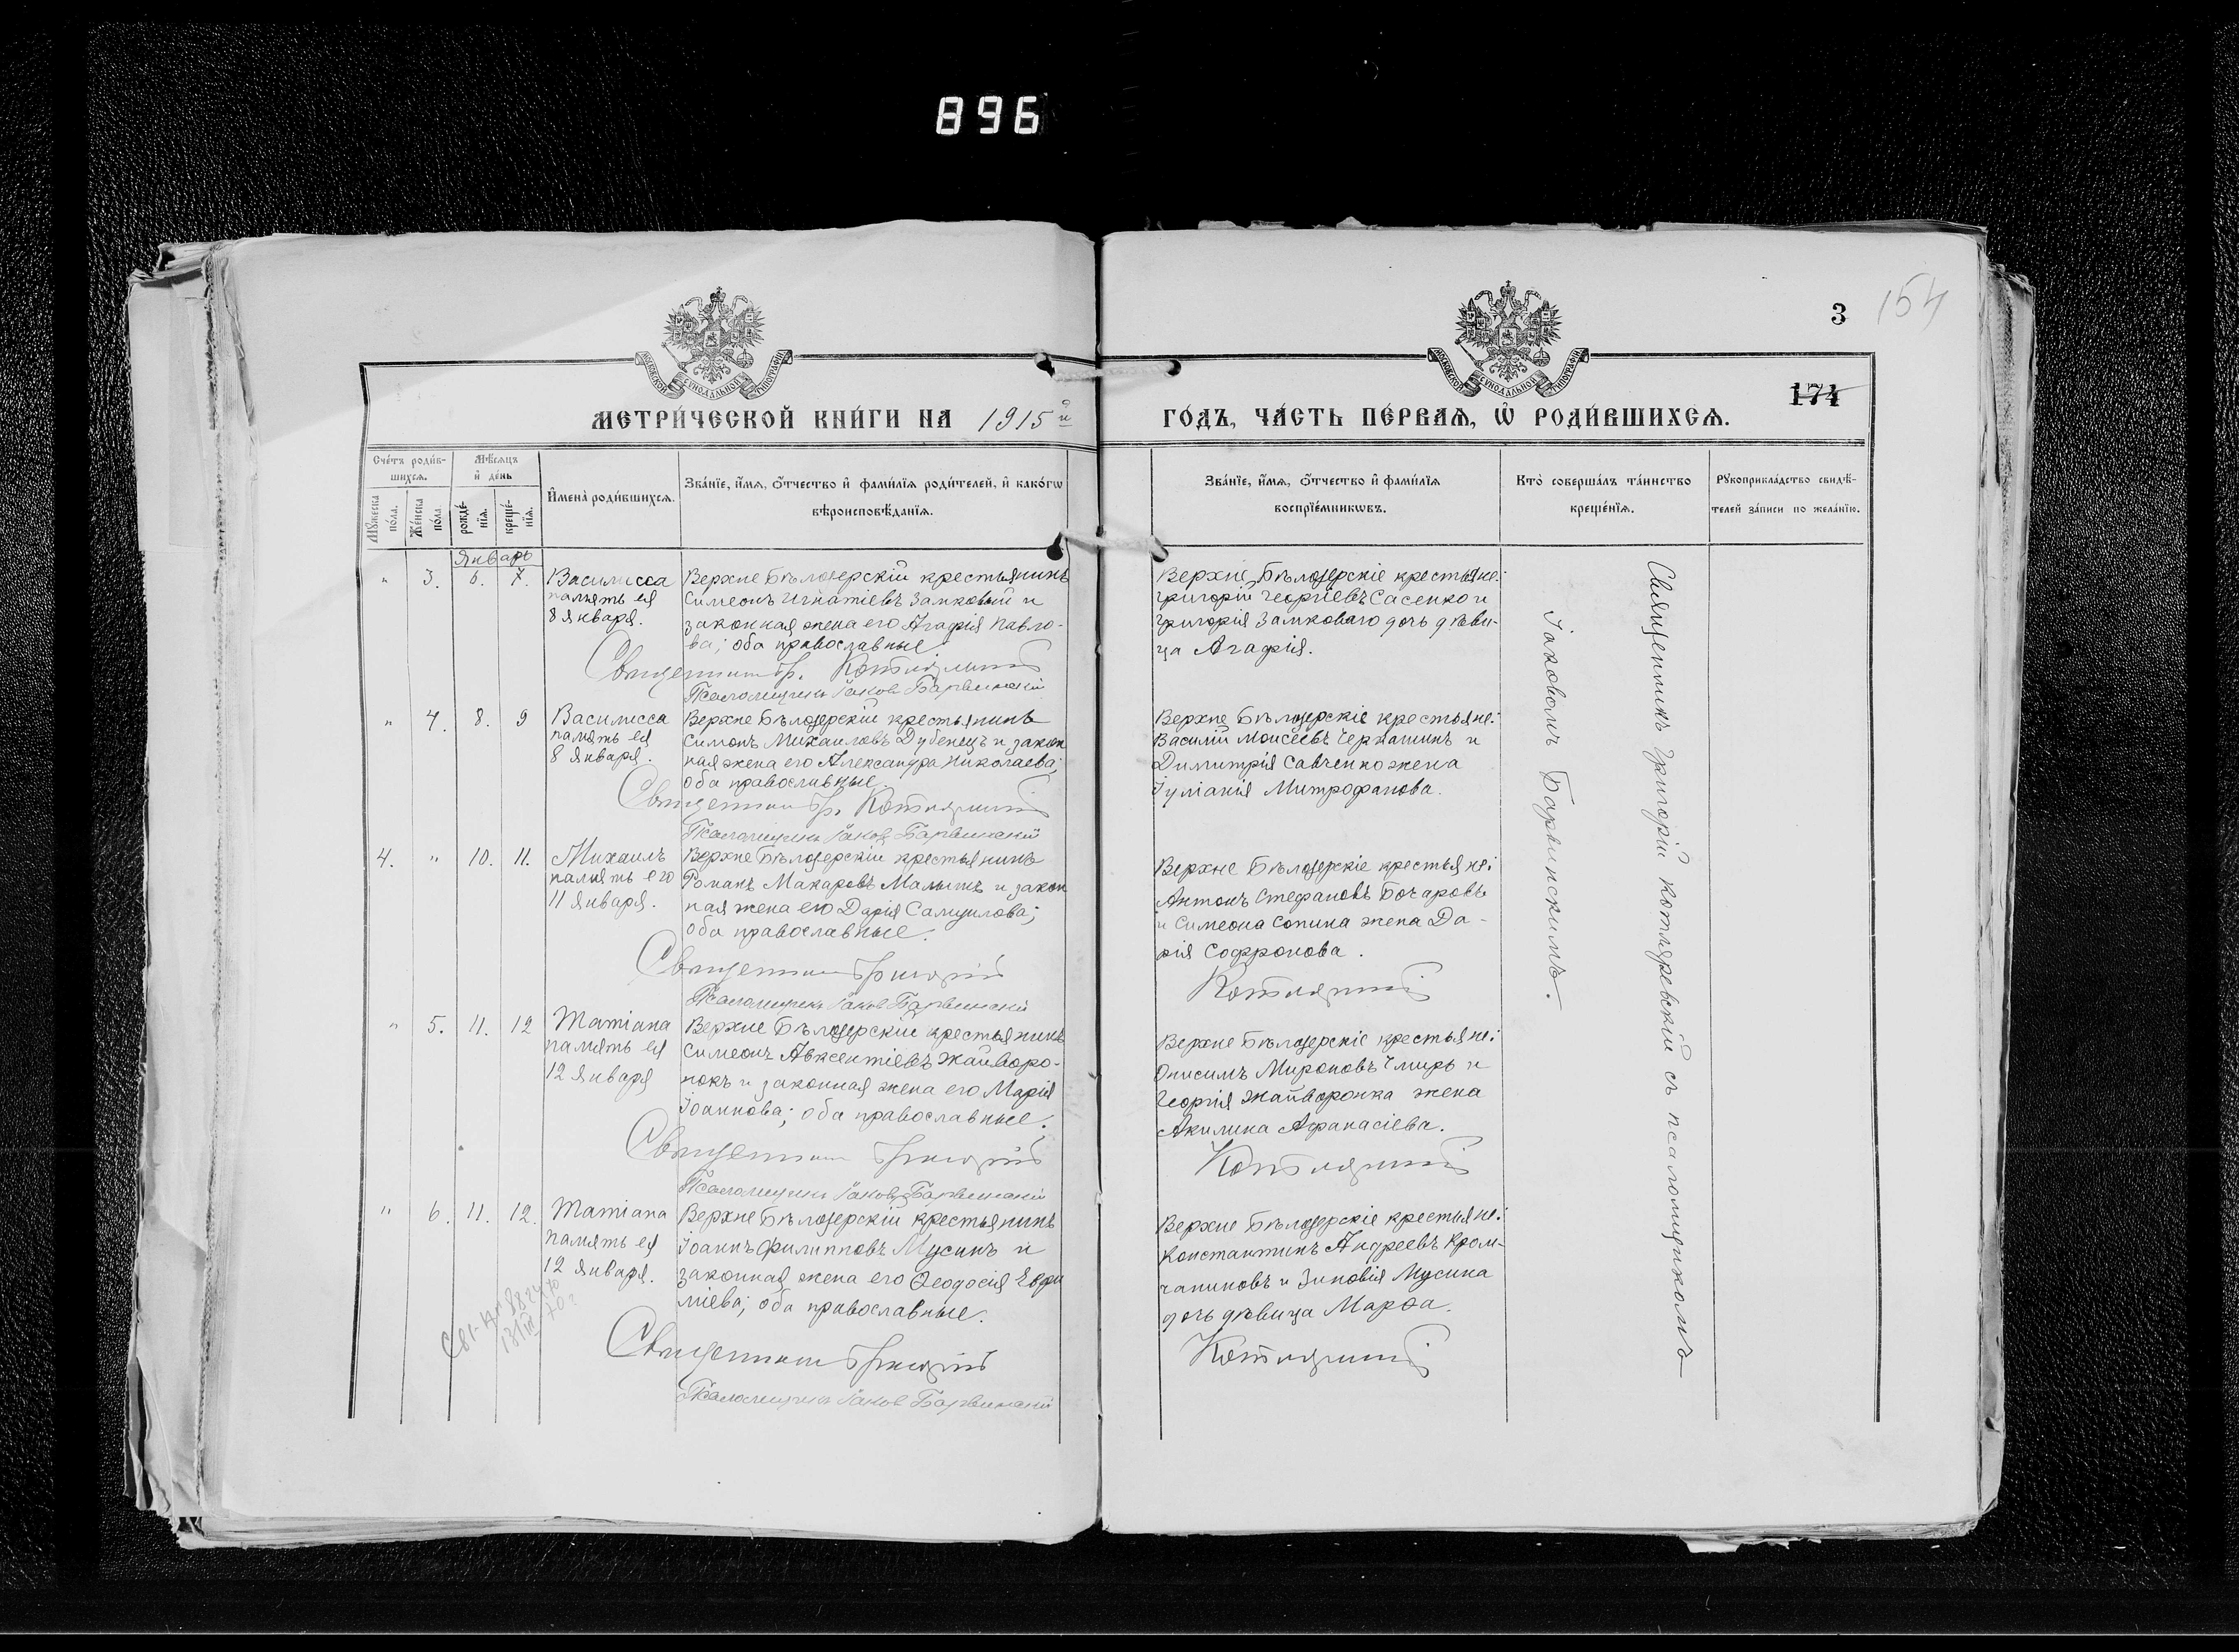 896
3
154
174
МОСКОВСКОЙ СѴНОДАЛЬНОЙ ТИПОГРАФІИ
МОСКОВСКОЙ СѴНОДАЛЬНОЙ ТИПОГРАФІИ
МЕТРИ́ЧЕСКОЙ КНИ́ГИ НА 1915й ГО́ДЪ, ЧА́СТЬ ПЕ́РВАѦ, Ѡ҆ РОДИ́ВШИХСѦ.
Сче́тъ роди́в-
шихсѧ.
Мꙋ́жеска
по́ла.
Же́нска
по́ла.
Мѣ́сѧцъ
и҆ де́нь
рожде́-
нїѧ.
креще́-
нїѧ.
И҆мена̀ роди́вшихсѧ.
Зва́нїе, и҆́мѧ, ѻ҆́тчество и҆ фами́лїѧ роди́телей, и҆ како́гѡ
вѣроисповѣ́данїѧ.
Зва́нїе, и҆́мѧ, ѻ҆́тчество и҆ фами́лїѧ
воспрїе́мникѡвъ.
Кто̀ соверша́лъ та́инство
креще́нїѧ.
Рꙋкоприкла́дство свидѣ́-
телей за́писи по жела́нїю.
Январь
" 3. 6. 7.
Василисса
память ея
8 января.
Верхне Бѣлозерскій крестьянинъ
Симеонъ Игнатіевъ Замковый и
законная жена его Агафія Павло-
ва; оба православные
Священникъ Гр. Котляревскій
Псаломщикъ Іаковъ Барвинскій
Верхне Бѣлозерскіе крестьяне:
Григорій Георгіевъ Сасенко и
Григорія Замковаго дочь дѣви-
ца Агафія.
" 4. 8. 9
Василисса
память ея
8 января.
Верхне Бѣлозерскій крестьянинъ
Симонъ Михаиловъ Дубенецъ и закон
ная жена его Александра Николаева;
оба православные
Священникъ Гр. Котляревскій
Псаломщикъ Іаковъ Барвинскій
Верхне Бѣлозерскіе крестьяне:
Василій Моисеевъ Черкашинъ и
Димитрія Савченко жена
Іуліанія Митрофанова.
4. " 10. 11.
Михаилъ
память его
11 января.
Верхне Бѣлозерскій крестьянинъ
Романъ Макаровъ и закон
ная жена его Дарія Самуилова;
оба православные.
Священникъ Григорій
Псаломщикъ Іаковъ Барвинскій
Верхне Бѣлозерскіе крестьяне:
Антонъ Стефановъ Бочаровъ
и Симеона Сопина жена Да-
рія Софронова.
Котляревскій
" 5. 11. 12
Татіана
память ея
12 января
Верхне Бѣлозерскій крестьянинъ
Симеонъ Авксентіевъ Жайворо-
нокъ и законная жена его Марія
Іоаннова; оба православные.
Священникъ Григорій
Псаломщикъ Іаковъ Барвинскій
Верхне Бѣлозерскіе крестьяне:
Онисимъ Мироновъ Чмирь и
Георгія Жайворонка жена
Акилина Афанасіева.
Котляревскій
" 6. 11. 12.
Татіана
память ея
12 января.
Верхне Бѣлозерскій крестьянинъ
Іоаннъ Филипповъ Мусинъ и
законная жена его Ѳеодосія Евфи
міева; оба православные.
Священникъ Григорій
Псаломщикъ Іаковъ Барвинскій
Верхне Бѣлозерскіе крестьяне:
Константинъ Андреевъ Кром-
чаниновъ и Зиновія Мусина
дочь дѣвица Марѳа.
Котляревскій
Священникъ Григорій Котляревскій съ псаломщикомъ
Іаковомъ Барвинскимъ.